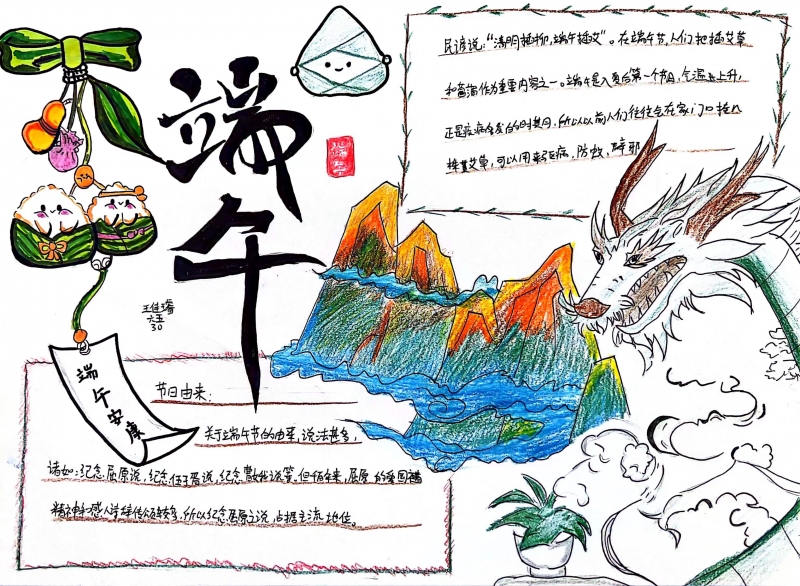 端午
民谚说："清明插柳，端午插艾"。在端午节，人们把插艾草
和菖蒲作为重要内容之一。端午是入夏后第一个节日，气温上升，
正是疫病多发的时期，所以以前人们往往会在家门口挂几
株艾草，可以用来驱病，防蚊，辟邪
王佳
六五
30
端午安康
节日由来：
关于端午节的由来，说法甚多，
诸如：纪念屈原说，纪念伍子胥说，纪念曹娥说等，但千百年来，屈原的爱国
精神和感人诗，所以纪念屈原之说占据主流地位。